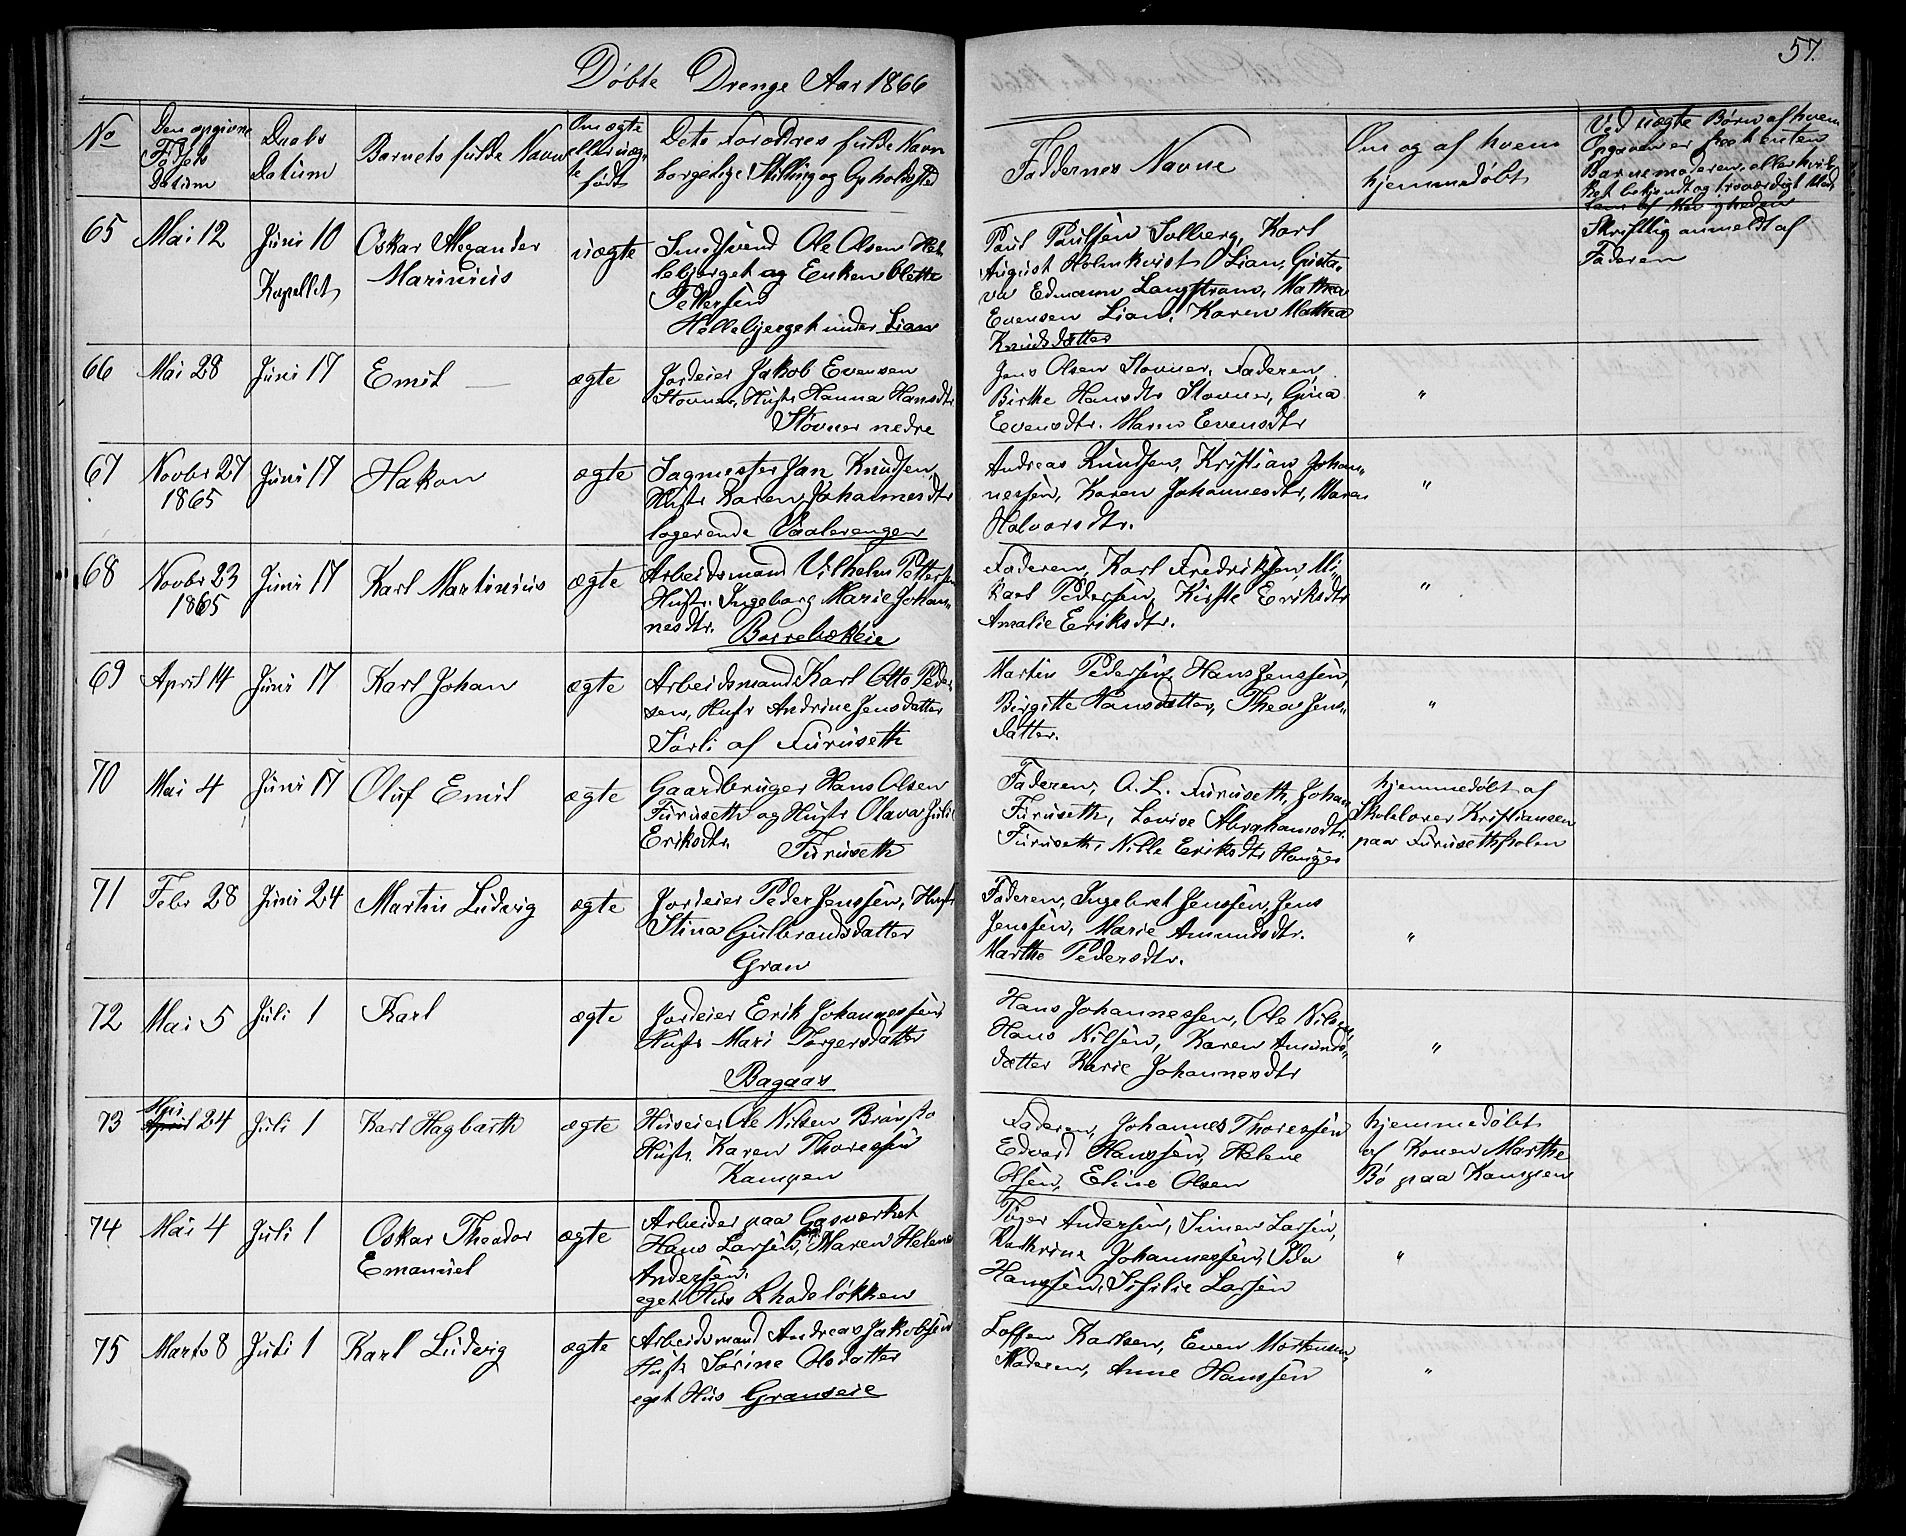 Døbte Drenge Aar 1866
57.
No
Den opgivne
Fødsels
Datum
Daabs
Datum
Barnets fulde Navn
Om ægte
eller uæg-
te
født
Dets Forældres fulde Navn
borgerlige Stilling og Opholdssted
Faddernes Navne
Om og af hvem
hjemmedøbt
Ved uægte Børn af hvem
Opgaven er skeet enten
Barnemoderen eller hvil-
ket bekjendt og troværdigt Med
65
Mai 12
Juni 10
Kapellet
Oskar Alexander
Marinius
uægte
Smedsvend Ole Olsen Hel-
lebjerget og Enken Olette
Pettersen
Hellebjerget under Lian
Paul Paulsen Solberg, Karl
August Holmkvist Lian, Gusta-
va Edmann Langstrøm, Mathea
Evensen Lian, Karen Mathea
Knudsdatter
Skriftlig anmeldt af
Faderen
66
Mai 28
Juni 17
Emil
ægte
Jordeier Jakob Evensen
Stovner, Hustr Hanna Hansdtr
Stovner nedre
Jens Olsen Stovner, Faderen
Birthe Hansdtr Stovner, Gina
Evensdtr. Maren Evensdtr
"
67
Novbr 27
1865
Juni 17
Hakon
ægte
Sagmester Jan Knudsen
Hustr Karen Johannesdtr
logerende Vaalerengen
Andreas Knudsen, Kristian Johan-
nessen, Karen Johannesdtr, Maren
Halvorsdtr.
"
68
Novbr 23
1865
Juni 17
Karl Martinius
ægte
Arbeidsmand Vilhelm Pettersen
Hustr. Ingeborg Marie Johan-
nesdtr. Borrebækkeie
Faderen, Karl Fredriksen, Mi-
kael Pedersen, Kirstie Eriksdtr
Amalie Eriksdtr.
"
69
April 14
Juni 17
Karl Johan
ægte
Arbeidsmand Karl Otto Peder-
sen, Hustr Andrine Jensdatter
Sørli af Furuseth
Martin Pedersen, Hans Jenssen,
Birgitte Hansdatter, Thea Jens-
datter.
"
70
Mai 4
Juni 17
Oluf Emil
ægte
Gaardbruger Hans Olsen
Furuseth og Hustr Olava Juli
Eriksdtr. Furuseth
Faderen, A. L. Furuseth, Johan
Furuseth, Lovise Abrahamsdtr.
Furuseth, Nille Eriksdtr Hauger
hjemmedøbt af
Skolelærer Kristiansen
paa Furusethskolen
71
Febr 28
Juni 24
Martin Ludvig
ægte
Jordeier Peder Jenssen, Hustr
Stina Gulbrandsdatter
Gran
Faderen, Ingebret Jenssen, Jens
Jenssen, Marie Amundsdtr.
Marthe Pedersdtr.
"
72
Mai 5
Juli 1
Karl
ægte
Jordeier Erik Johannessen
Hustr Mari Torgersdatter
Bagaas
Hans Johannessen, Ole Nilsen
Hans Nilsen, Karen Amunds-
datter Karie Johannesdtr
"
73
Mai
April 24
Juli 1
Karl Hagbarth
ægte
Huseier Ole Nilsen
Hustr. Karen Thoressen
Kampen
Faderen, Johannes Thoressen
Edvard Hanssen, Helene
Olsen, Eline Olsen
hjemmedøbt
af Konen Marthe
Bø paa Kampen
74
Mai 4
Juli 1
Oskar Theodor
Emanuel
ægte
Arbeider paa Gasværket
Hans Larsen, Maren Helene
Andersen.
eget Hus Rhodeløkken
Andersen, Simen Larsen,
Kathrine Johannessen, Ida
Hanssen, Sisilie Larsen
"
75
Marts 8
Juli 1
Karl Ludvig
ægte
Arbeidsmand Andreas Jakobsen
Hustr Sørine Olsdatter
eget Hus Granseie
Loffen Karlsen, Even Mortensen,
Moderen, Anne Hanssen
"